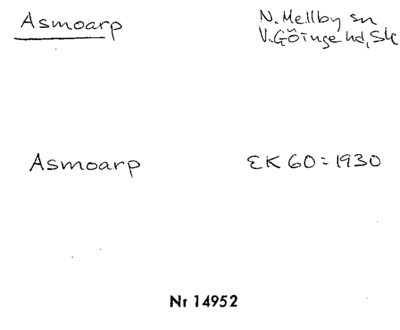 Asmoarp
N. Mellby sn
V. Göinge hd, Sk
Asmoarp
EK 60 = 1930
Nr 14952